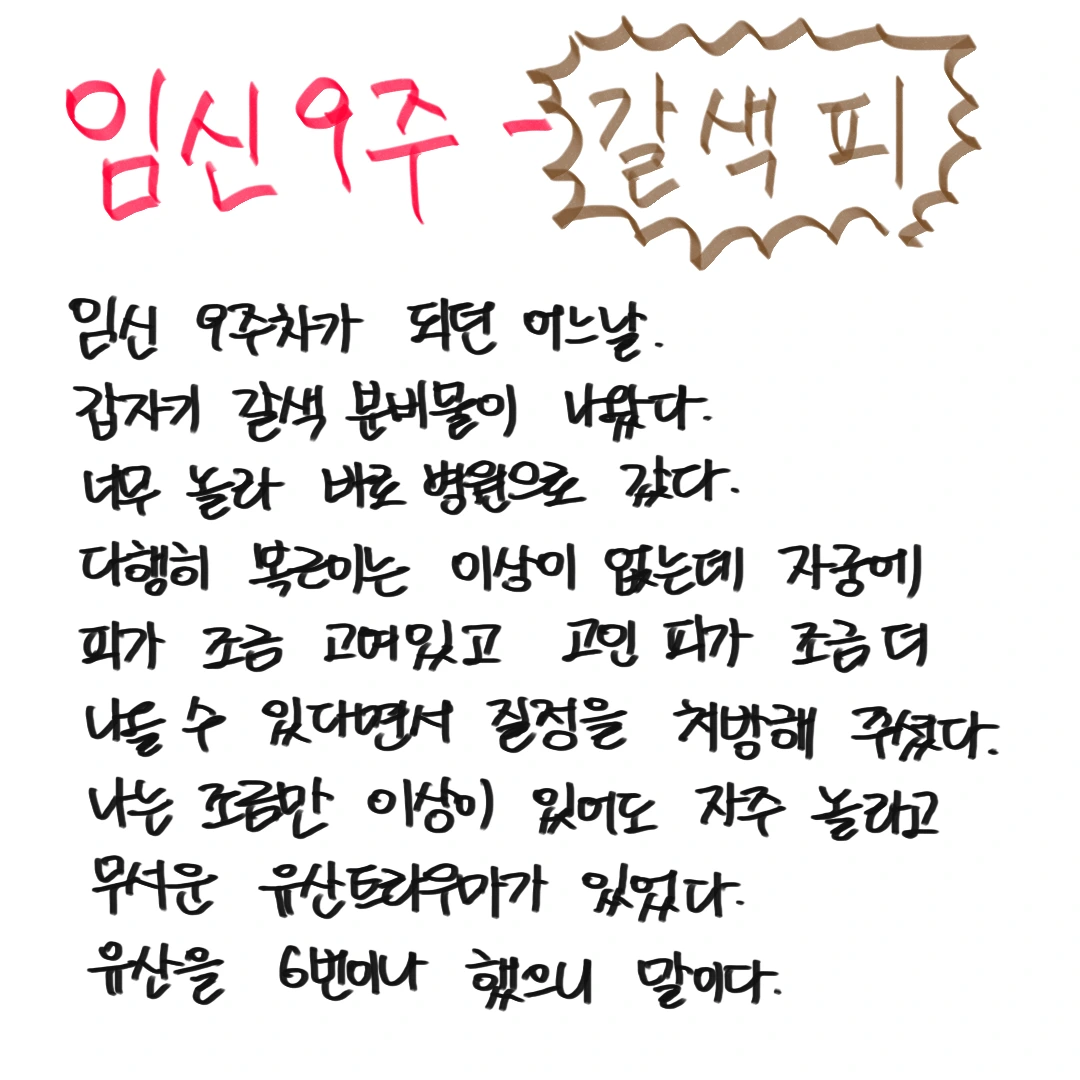 임신 9주 - 갈색 피
임신 9주차가 되던 어느날.
갑자기 갈색 분비물이 나왔다.
너무 놀라 바로 병원으로 갔다.
다행히 복근이는 이상이 없는데 자궁에
피가 조금 고여있고 고인 피가 조금 더
나올 수 있다면서 질정을 처방해 주셨다.
나는 조금만 이상이 있어도 자주 놀라고
무서운 유산트라우마가 있었다.
유산을 6번이나 했으니 말이다.